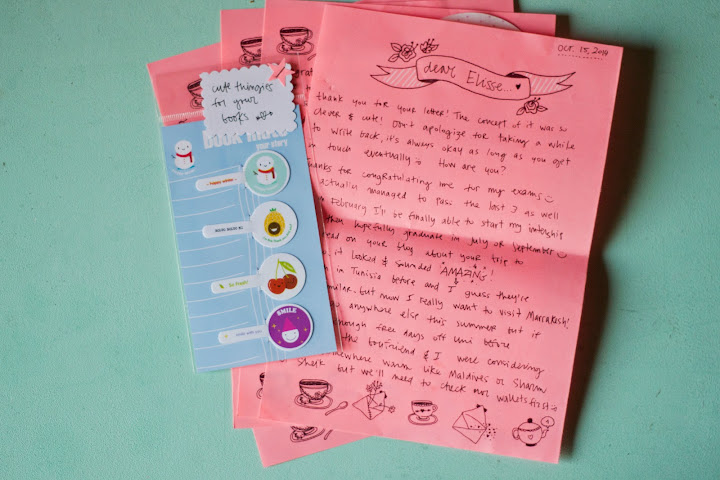 Oct. 15, 2014
dear Elisse...
thank you for your letter! The concept of it was so
clever & cute! Don't apologize for taking a while
to write back, it's always okay as long as you get
in touch eventually How are you?
thanks for congratulating me for my exams
actually managed to pass the last 3 as well
February I'll be finally able to start my intership
then hopefully graduate in July or September
read on your blog about your trip to
it looked & sounded AMAZING!
in Tunisia before and I guess they're
but now I really want to visit Marrakesh!
anywhere else this summer but if
enough free days off uni before
the boyfriend & I were considering
somewhere warm like Maldives or Sharm
Sheik but we'll need to check our wallets first
cute thingies
for your
books
book mark
your story
happy winter
So Fresh!
SMILE